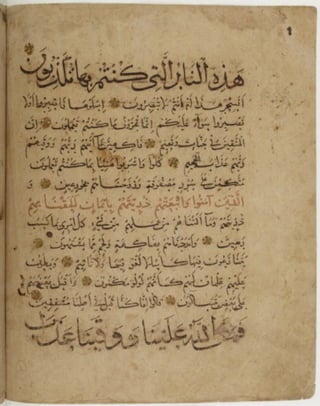 هَذِهِ النَّارُ الَّتِي كُنْتُمْ بِهَا تُكَذِّبُونَ
أَفَسِحْرٌ هَذَا أَمْ أَنْتُمْ لَا تُبْصِرُونَ اصْلَوْهَا فَاصْبِرُوا أَوْ لَا
تَصْبِرُوا سَوَاءٌ عَلَيْكُمْ إِنَّمَا تُجْزَوْنَ مَا كُنْتُمْ تَعْمَلُونَ إِنَّ
الْمُتَّقِينَ فِي جَنَّاتٍ وَنَعِيمٍ فَاكِهِينَ بِمَا آتَاهُمْ رَبُّهُمْ وَوَقَاهُمْ
رَبُّهُمْ عَذَابَ الْجَحِيمِ كُلُوا وَاشْرَبُوا هَنِيئًا بِمَا كُنْتُمْ تَعْمَلُونَ
مُتَّكِئِينَ عَلَى سُرُرٍ مَصْفُوفَةٍ وَزَوَّجْنَاهُمْ بِحُورٍ عِينٍ وَ
الَّذِينَ آمَنُوا وَاتَّبَعَتْهُمْ ذُرِّيَّتُهُمْ بِإِيمَانٍ أَلْحَقْنَا بِهِمْ
ذُرِّيَّتَهُمْ وَمَا أَلَتْنَاهُمْ مِنْ عَمَلِهِمْ مِنْ شَيْءٍ كُلُّ امْرِئٍ بِمَا كَسَبَ
رَهِينٌ وَأَمْدَدْنَاهُمْ بِفَاكِهَةٍ وَلَحْمٍ مِمَّا يَشْتَهُونَ
يَتَنَازَعُونَ فِيهَا كَأْسًا لَا لَغْوٌ فِيهَا وَلَا تَأْثِيمٌ وَيَطُوفُ
عَلَيْهِمْ غِلْمَانٌ لَهُمْ كَأَنَّهُمْ لُؤْلُؤٌ مَكْنُونٌ وَأَقْبَلَ بَعْضُهُمْ
عَلَى بَعْضٍ يَتَسَاءَلُونَ قَالُوا إِنَّا كُنَّا قَبْلُ فِي أَهْلِنَا مُشْفِقِينَ
فَمَنَّ اللَّهُ عَلَيْنَا وَوَقَيْنَا عَذَابَ